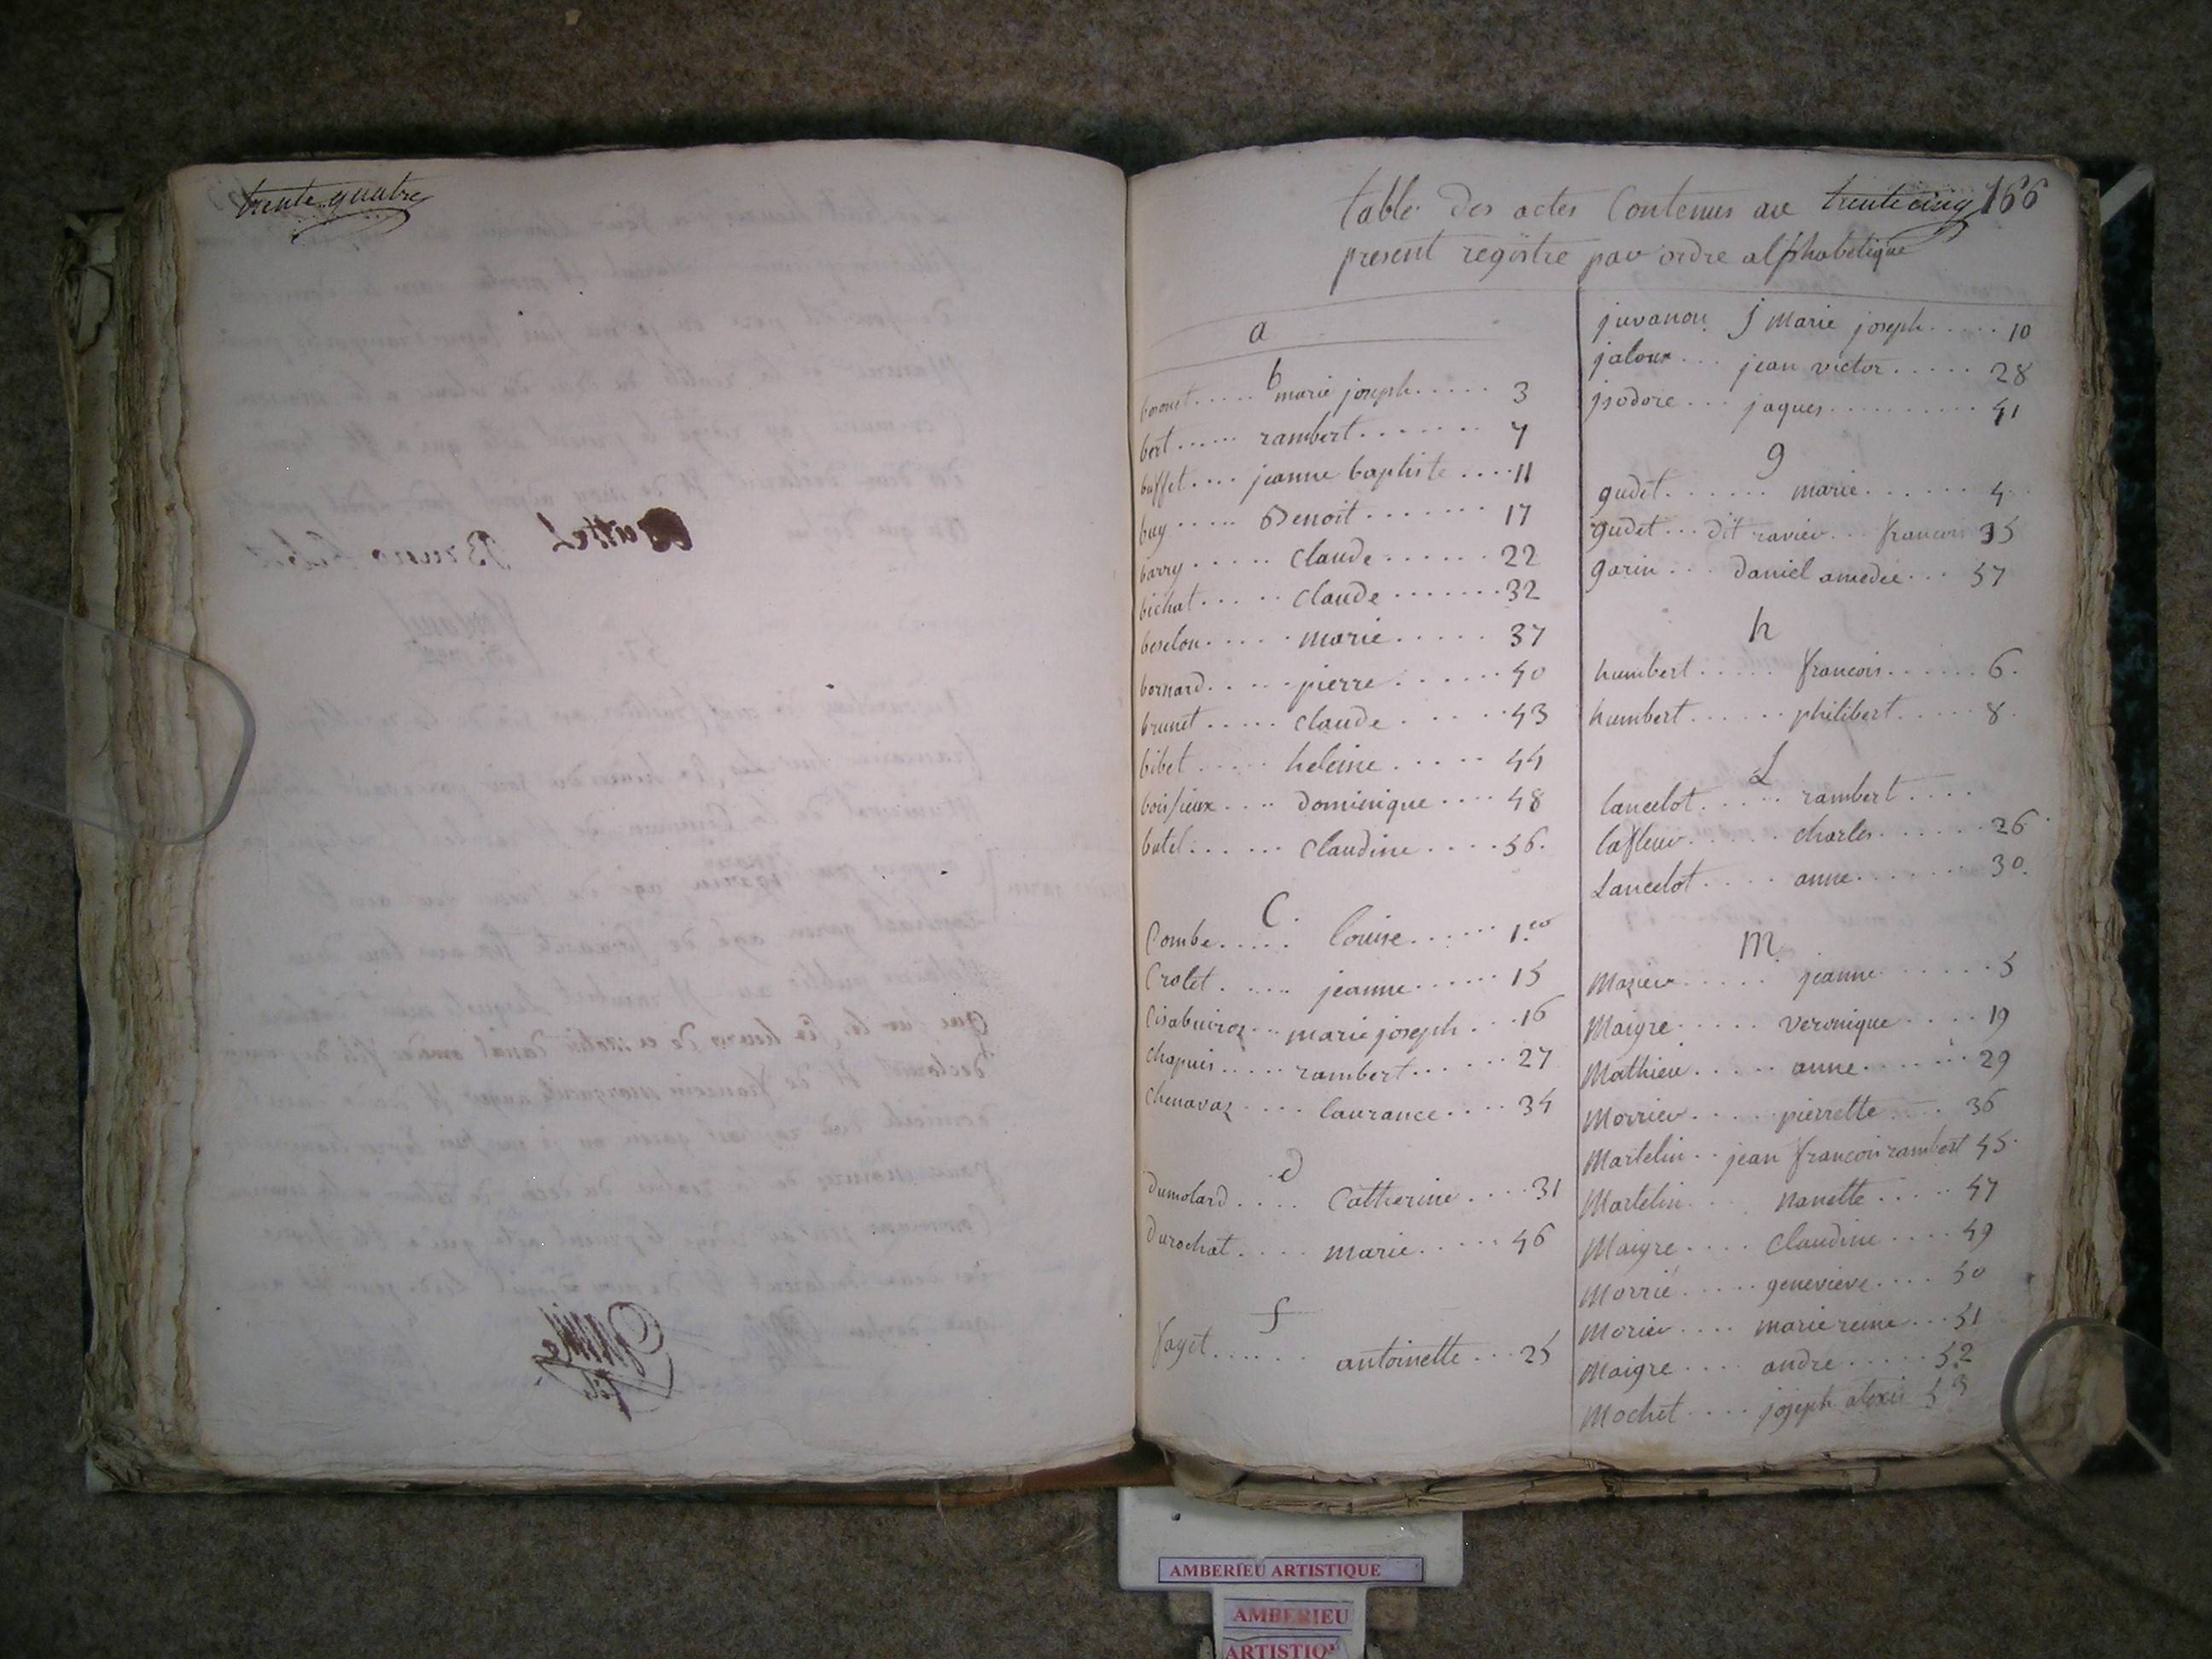 trente quatre
table des actes Contenus au trente cinq 166
present registre par ordre alphabetique
a
b
marie joseph ..... 3
bert ...... rambert ........ 7
buffet .... jeanne baptiste .... 11
buy ..... Benoit ........ 17
barry ..... Claude ...... 22
bichat ..... Claude ....... 32
beselon ..... marie ..... 37
bornard ..... pierre ...... 40
brunet ..... claude ..... 43
bibet ..... heleine ..... 44
boissieux .... dominique .... 48
butel ..... Claudine .... 56.
C.
Combe ..... louise ...... 1.er
Crolet ..... jeanne ...... 15
marie joseph ... 16
Chapuis ..... rambert ...... 27
Chenavaz .... laurance .... 34
d
dumolard .... Catherine .... 31
durochat .... marie ..... 46
f
fayet ...... antoinette ... 25
j
juvanon marie joseph ..... 10
jaloux ... jean victor ..... 28
jsodore ... jaques .......... 41
g
gudet ...... marie ...... 4
gudet ... dit ravier ... francois 35
garin ... daniel amedee ... 57
h
humbert ..... francois ...... 6.
humbert ...... philibert ..... 8.
L
lancelot ..... rambert ....
lafleur ..... charles ...... 26
Lancelot .... anne ...... 30.
M.
Mazier ..... jeanne ...... 5
Maigre ..... veronique .... 19
Mathieu ..... anne ...... 29
Morrier ..... pierrette .... 36
Martelin .. jean francois rambert 45.
Martelin .... nanette ..... 47
Maigre .... Claudine .... 49
Morrié ..... genevieve .... 50
Morier .... marie reine ... 51
Maigre .... andre ..... 52
Mochet .... joseph alexis 53
AMBERIEU ARTISTIQUE
AMBERIEU
ARTISTIQ